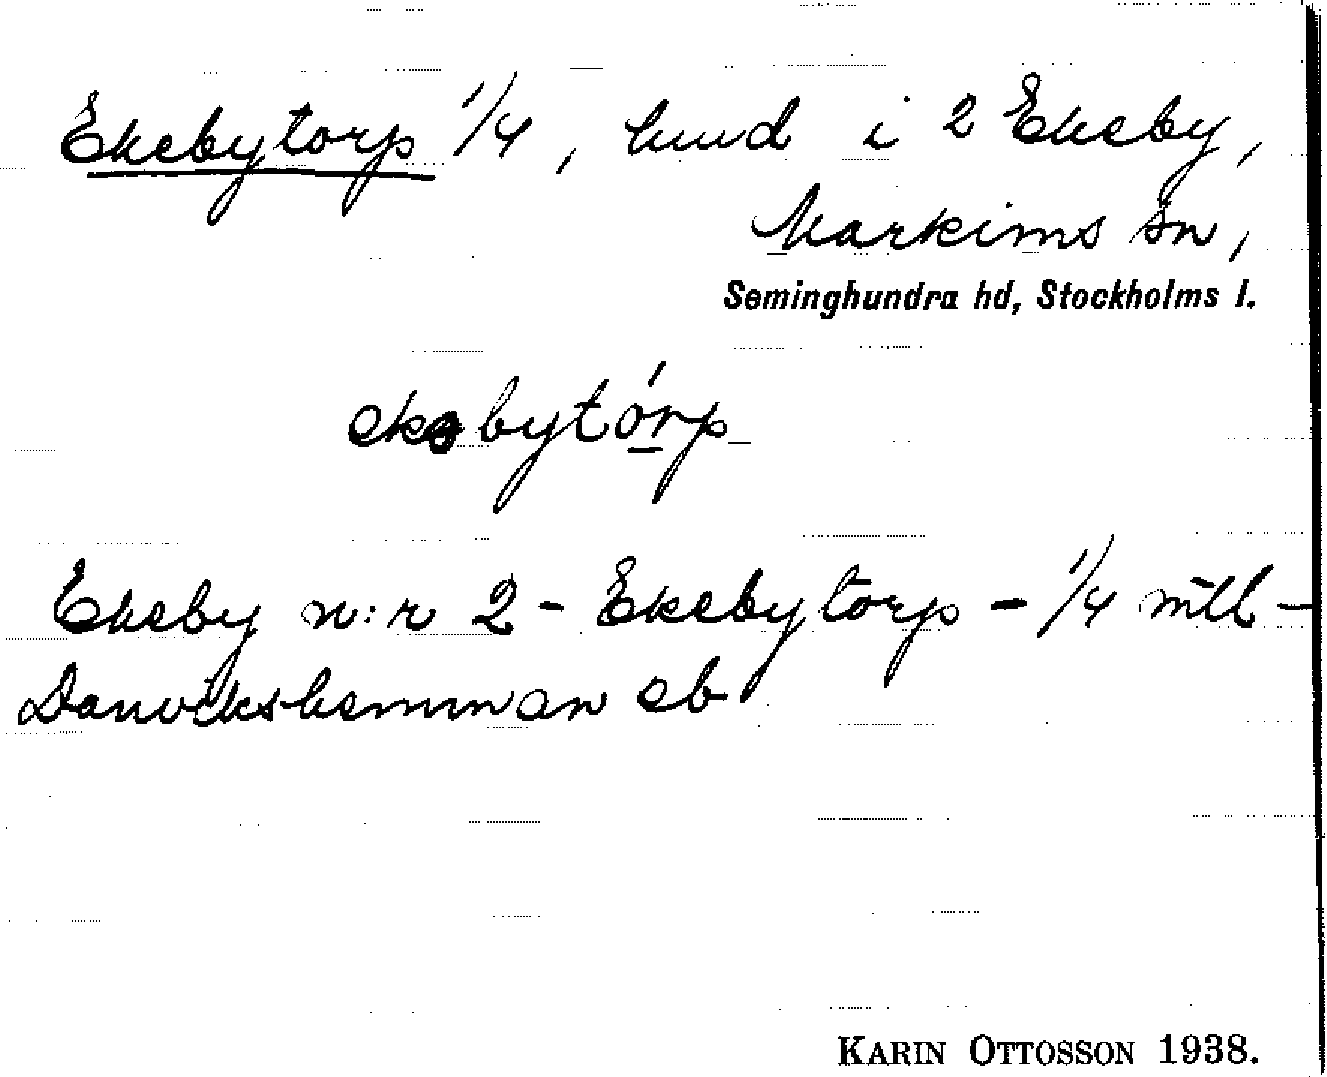 Ekebytorp 1/4, hmd i 2 Ekeby,
Markims sn,
Seminghundra hd, Stockholms l.
ekəbytórp
Ekeby n:r 2 - Ekebytorp - 1/4 mtl -
Danvikshemman eb
KARIN OTTOSSON 1938.